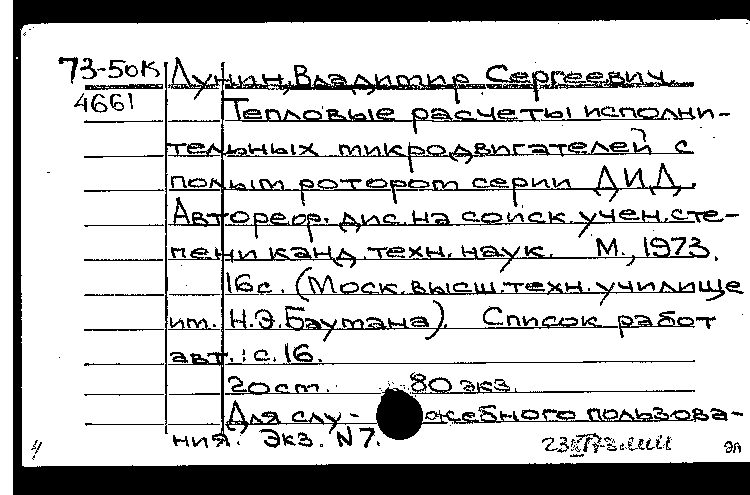 73-50К Лунин, Владимир Сергеевич.
4661 Тепловые расчеты исполни-
тельных микродвигателей с
полым ротором серии ДИД.
Автореф. дис. на соиск. учен. сте-
пени канд. техн. наук. М., 1973.
16 с. (Моск. высш. техн. училище
им. Н.Э. Баумана). Список работ
авт.: с. 16.
20 см. 80 экз.
Для слу- жебного пользова-
ния. Экз. N 7.